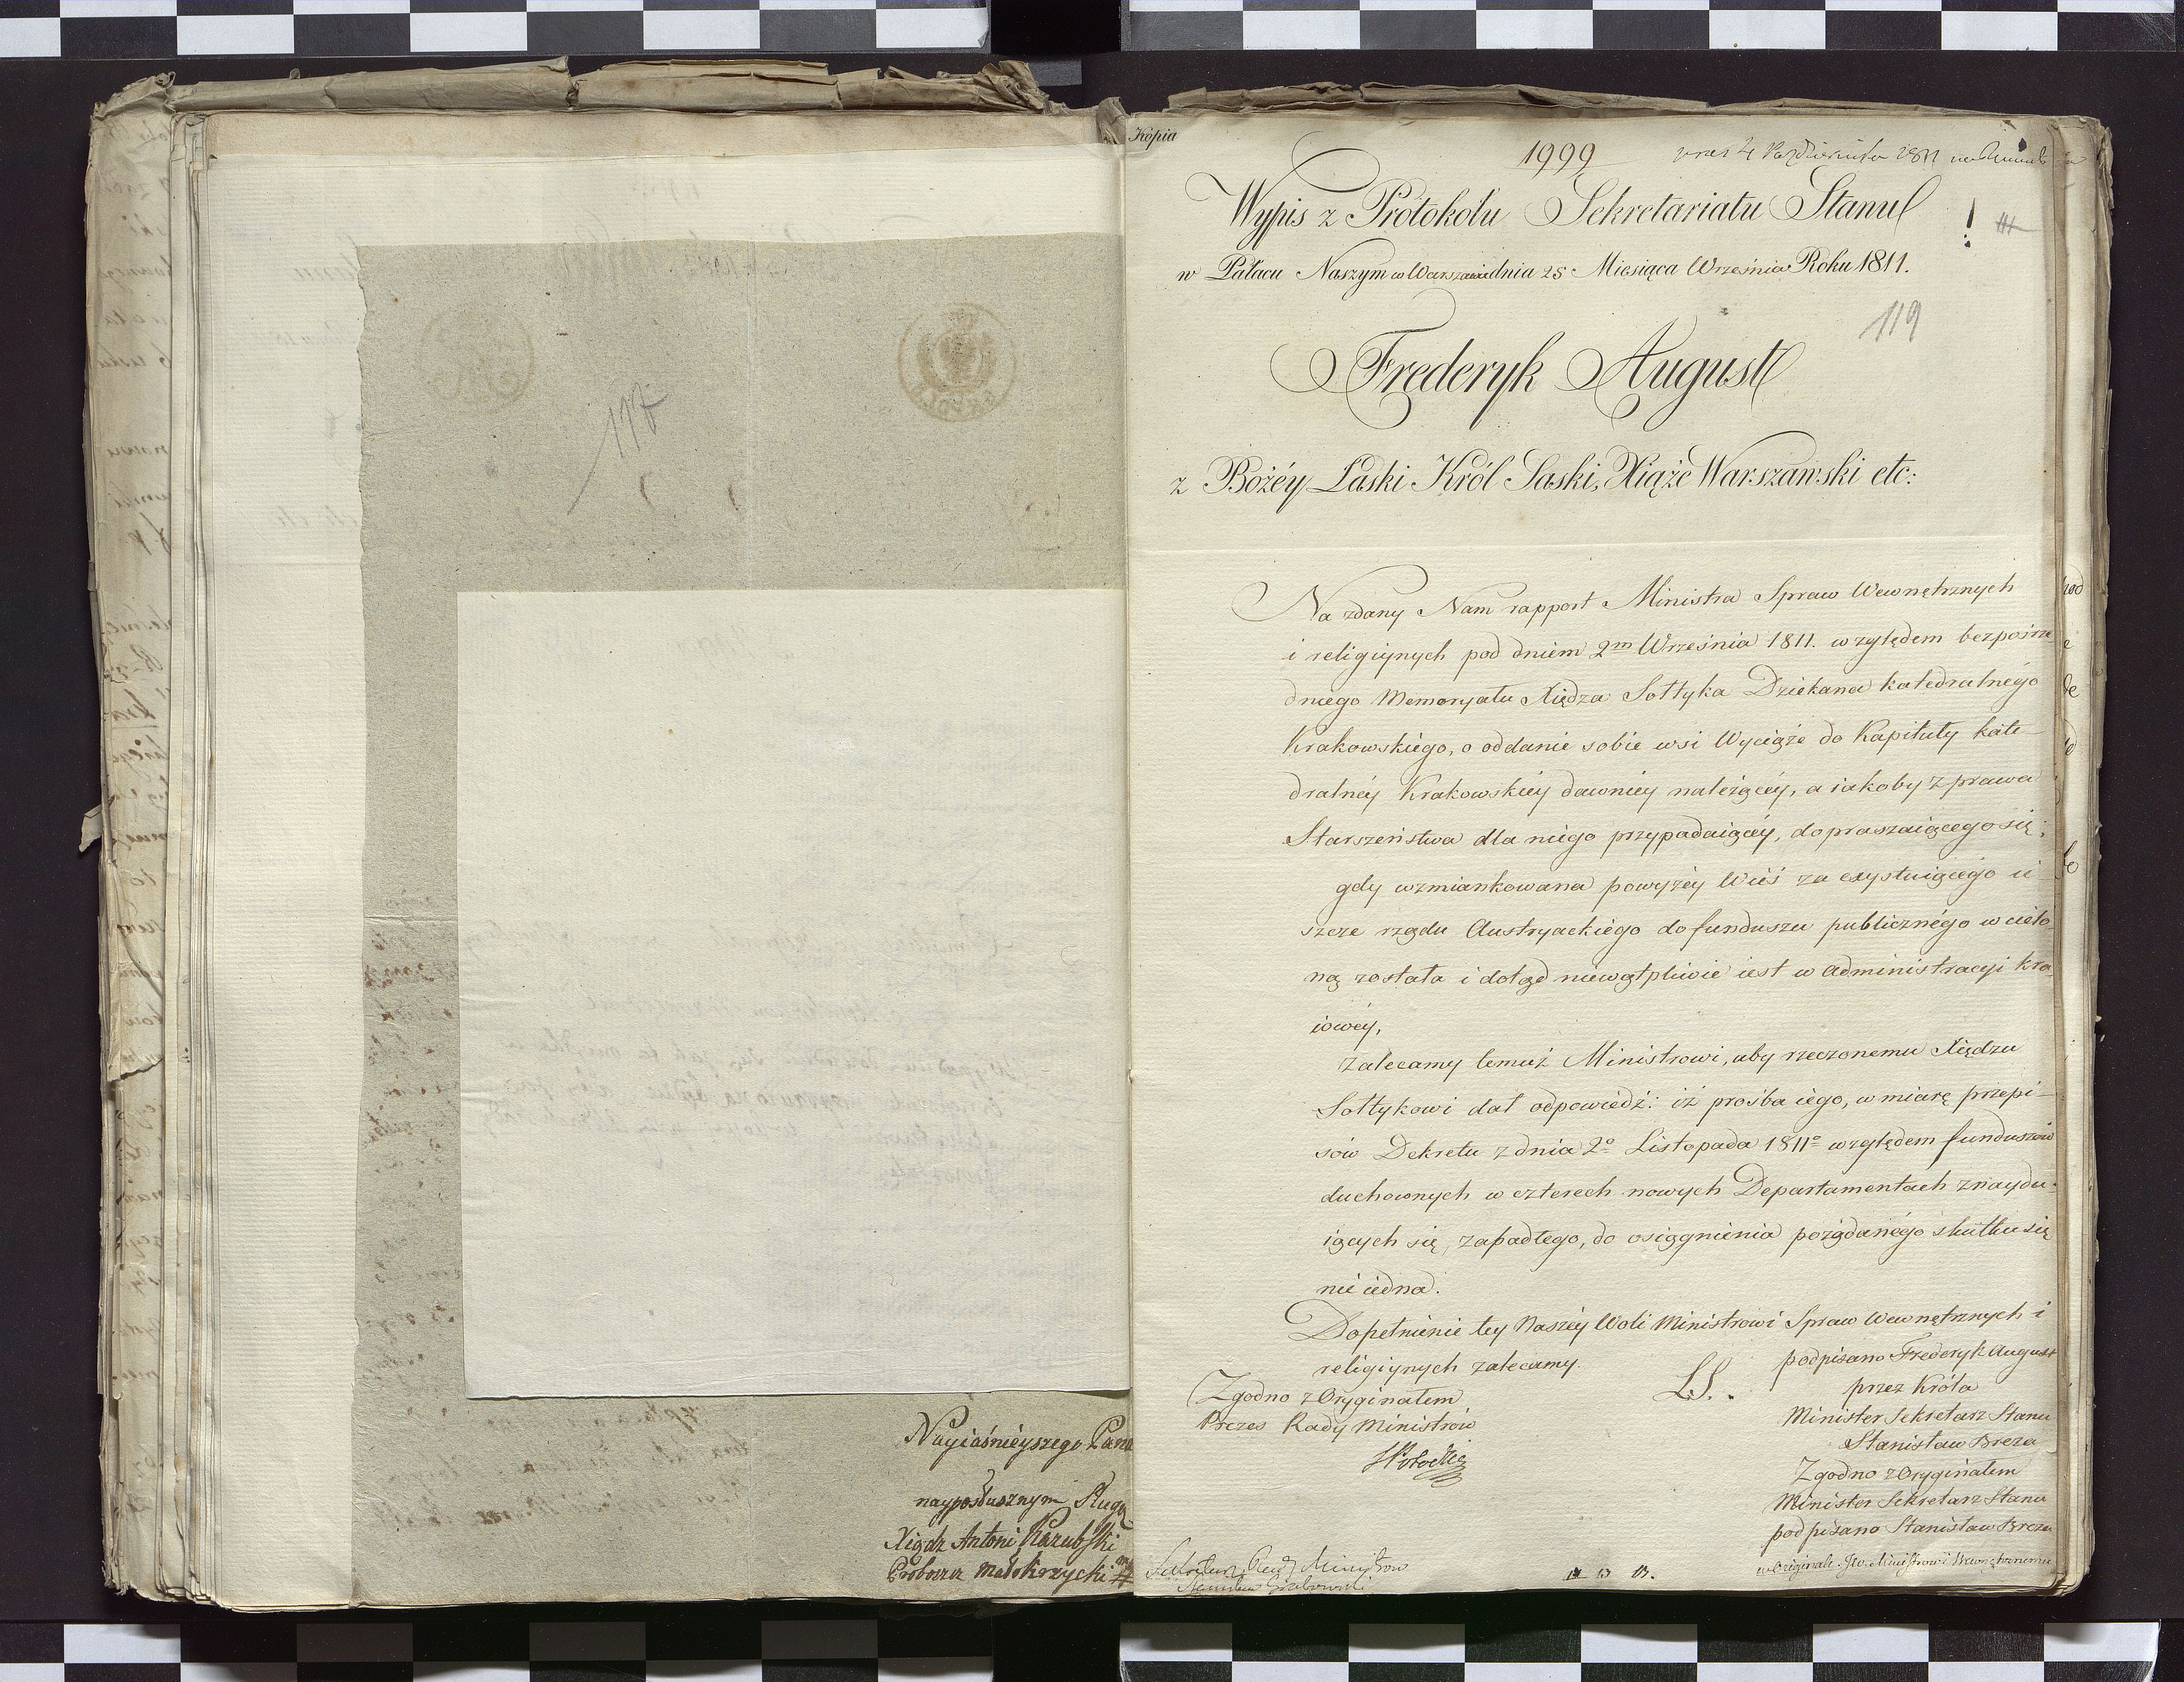 117
Nayiaśnieyszego Pana
nayposłusznym Sługą
Xiądz Antoni
Proboszcz
Kopia
1999
4 Października 1811
Wypis z Protokołu Sekretariatu Stanu
w Pałacu Naszym w Warszawie dnia 25 Miesiąca Września Roku 1811.
119
Frederyk August
z Bożéy Łaski Król Saski, Xiąże Warszawski etc:
Na zdany Nam rapport Ministra Spraw Wewnętrznych
i religiynych pod dniem 2m Września 1811. względem bezpośrze
dniego Memoryału Xiędza Sołtyka Dziekana katedralnégo
Krakowskiégo, o oddanie sobie wsi Wyciąże do Kapituły kate-
dralnéy Krakowskiéy dawniey należącéy, a iakoby z prawa
Starszeństwa dla niégo przypadaiącéy, dopraszaiącego się;
gdy wzmiankowana powyżéy Wieś za exystuiącégo ie-
szcze rządu Austryackiego do funduszu publicznégo wcielo
ną została i dotąd niewątpliwie iest w administracyi kra
iowéy,
Zalecamy temuż Ministrowi, aby rzeczonemu Xiędzu
Sołtykowi dał odpowiedź: iż prośba iego, w miarę przepi-
sów Dekretu z dnia 2o Listopada 1811o względem funduszów
duchownych w czterech nowych Departamentach znaydu-
iących się, zapadłego, do osiągnienia pożądanégo skutku się
nie iedna.
Dopełnienie tey Naszéy Woli Ministrowi Spraw Wewnętrznych i
religiynych zalecamy.
podpisano Frederyk August
L.S.
przez Króla
Minister Sekretarz Stanu
Stanisław Breza
Zgodno z Oryginałem
Minister Sekretarz Stanu
podpisano Stanisław Breza
Zgodno z Oryginałem
Prezes Rady Ministrów
Sekretarz Rady Ministrów
Stanisław Grabowski